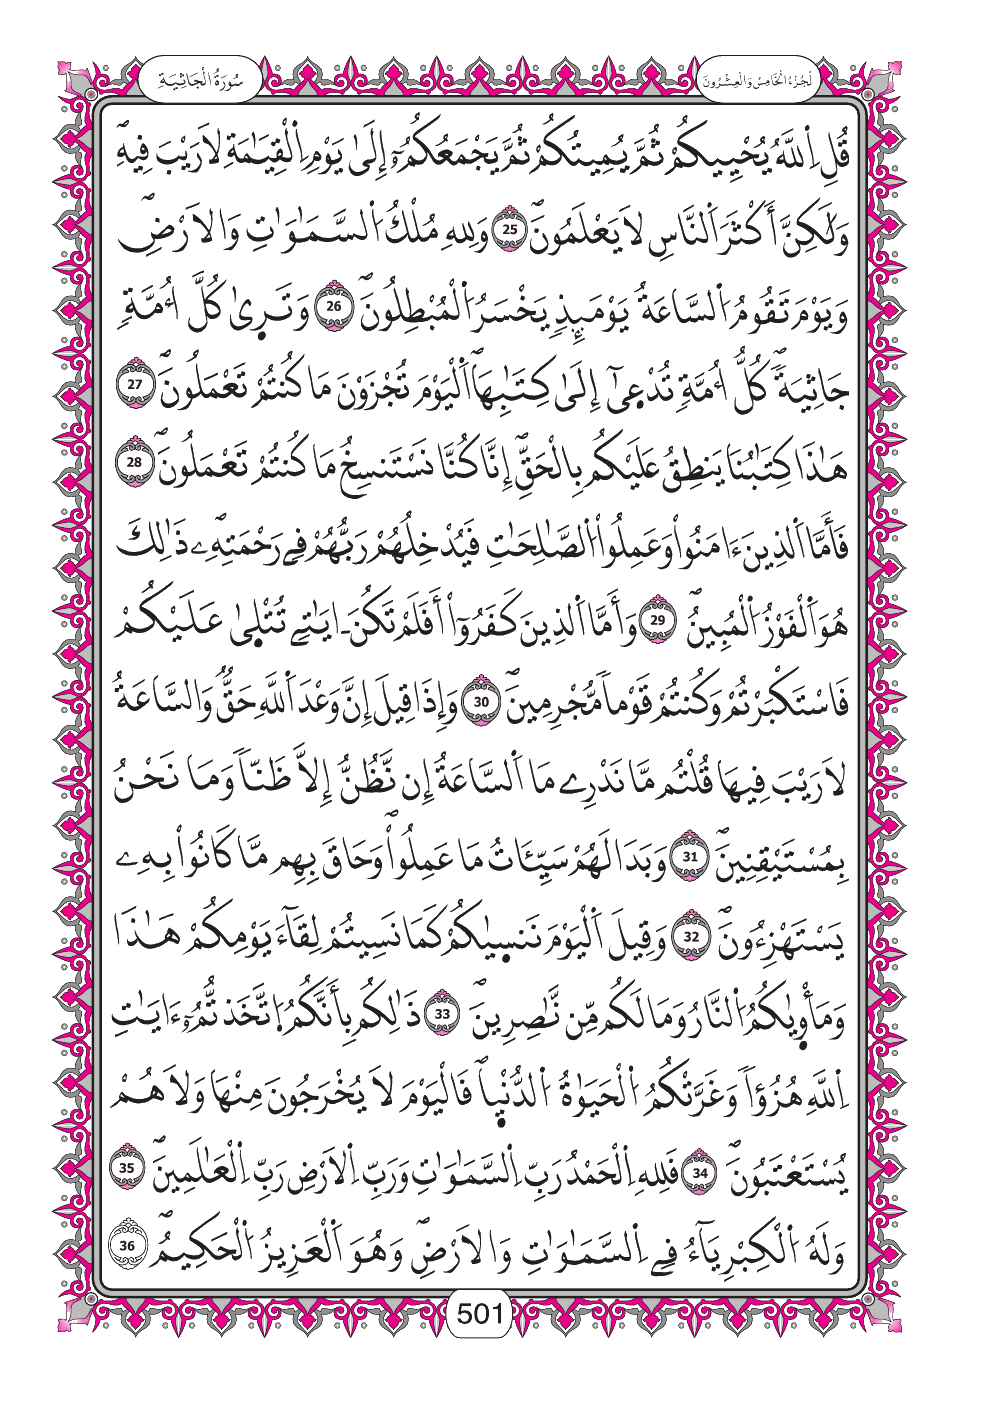 سُورَةُ الْجَاثِيَةِ
اَلْجُزْءُ الْخَامِسُ وَالْعِشْرُونَ
قُلِ اِ۬للَّهُ يُحْيِيكُمْ ثُمَّ يُمِيتُكُمْ ثُمَّ يَجْمَعُكُمُۥٓ إِلَىٰ يَوْمِ اِ۬لْقِيَٰمَةِ لَا رَيْبَ فِيهِۖ
وَلَٰكِنَّ أَكْثَرَ اَ۬لنَّاسِ لَا يَعْلَمُونَۖ 25 وَلِلهِ مُلْكُ اُ۬لسَّمَٰوَٰتِ وَالَارْضِۖ
وَيَوْمَ تَقُومُ اُ۬لسَّاعَةُ يَوْمَئِذٖ يَخْسَرُ اُ۬لْمُبْطِلُونَۖ 26 وَتَر۪ىٰ كُلَّ أُمَّةٖ
جَاثِيَةٗۖ كُلُّ أُمَّةٖ تُدْع۪ىٰٓ إِلَىٰ كِتَٰبِهَاۖ اَ۬لْيَوْمَ تُجْزَوْنَ مَا كُنتُمْ تَعْمَلُونَۖ 27
هَٰذَا كِتَٰبُنَا يَنطِقُ عَلَيْكُم بِالْحَقِّۖ إِنَّا كُنَّا نَسْتَنسِخُ مَا كُنتُمْ تَعْمَلُونَۖ 28
فَأَمَّا اَ۬لذِينَ ءَامَنُواْ وَعَمِلُواْ اُ۬لصَّٰلِحَٰتِ فَيُدْخِلُهُمْ رَبُّهُمْ فِے رَحْمَتِهِۦۖ ذَٰلِكَ
هُوَ اَ۬لْفَوْزُ اُ۬لْمُبِينُۖ 29 وَأَمَّا اَ۬لذِينَ كَفَرُوٓاْ أَفَلَمْ تَكُنَ اٰيَٰتِے تُتْل۪ىٰ عَلَيْكُمْ
فَاسْتَكْبَرْتُمْ وَكُنتُمْ قَوْماٗ مُّجْرِمِينَۖ 30 وَإِذَا قِيلَ إِنَّ وَعْدَ اَ۬للَّهِ حَقّٞ وَالسَّاعَةُ
لَا رَيْبَ فِيهَا قُلْتُم مَّا نَدْرِے مَا اَ۬لسَّاعَةُ إِن نَّظُنُّ إِلَّا ظَنّاٗ وَمَا نَحْنُ
بِمُسْتَيْقِنِينَۖ 31 وَبَدَا لَهُمْ سَيِّـَٔاتُ مَا عَمِلُواْۖ وَحَاقَ بِهِم مَّا كَانُواْ بِهِۦ
يَسْتَهْزِءُونَۖ 32 وَقِيلَ اَ۬لْيَوْمَ نَنس۪ىٰكُمْ كَمَا نَسِيتُمْ لِقَآءَ يَوْمِكُمْ هَٰذَا
وَمَأْو۪ىٰكُمُ اُ۬لنَّارُ وَمَا لَكُم مِّن نَّٰصِرِينَۖ 33 ذَٰلِكُم بِأَنَّكُمُ اُ۪تَّخَذتُّمُۥٓ ءَايَٰتِ
اِ۬للَّهِ هُزُؤاٗ وَغَرَّتْكُمُ اُ۬لْحَيَوٰةُ اُ۬لدُّنْي۪اۖ فَالْيَوْمَ لَا يُخْرَجُونَ مِنْهَا وَلَا هُمْ
يُسْتَعْتَبُونَۖ 34 فَلِلهِ اِ۬لْحَمْدُ رَبِّ اِ۬لسَّمَٰوَٰتِ وَرَبِّ اِ۬لَارْضِ رَبِّ اِ۬لْعَٰلَمِينَۖ 35
وَلَهُ اُ۬لْكِبْرِيَآءُ فِے اِ۬لسَّمَٰوَٰتِ وَالَارْضِۖ وَهُوَ اَ۬لْعَزِيزُ اُ۬لْحَكِيمُۖ 36
501